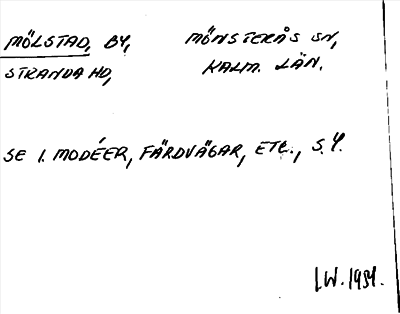 MÖLSTAD, BY, MÖNSTERÅS SN,
STRANDA HD, KALM. LÄN.
SE I. MODÉER, FÄRDVÄGAR, ETC., S. 4.
I.W. 1954.